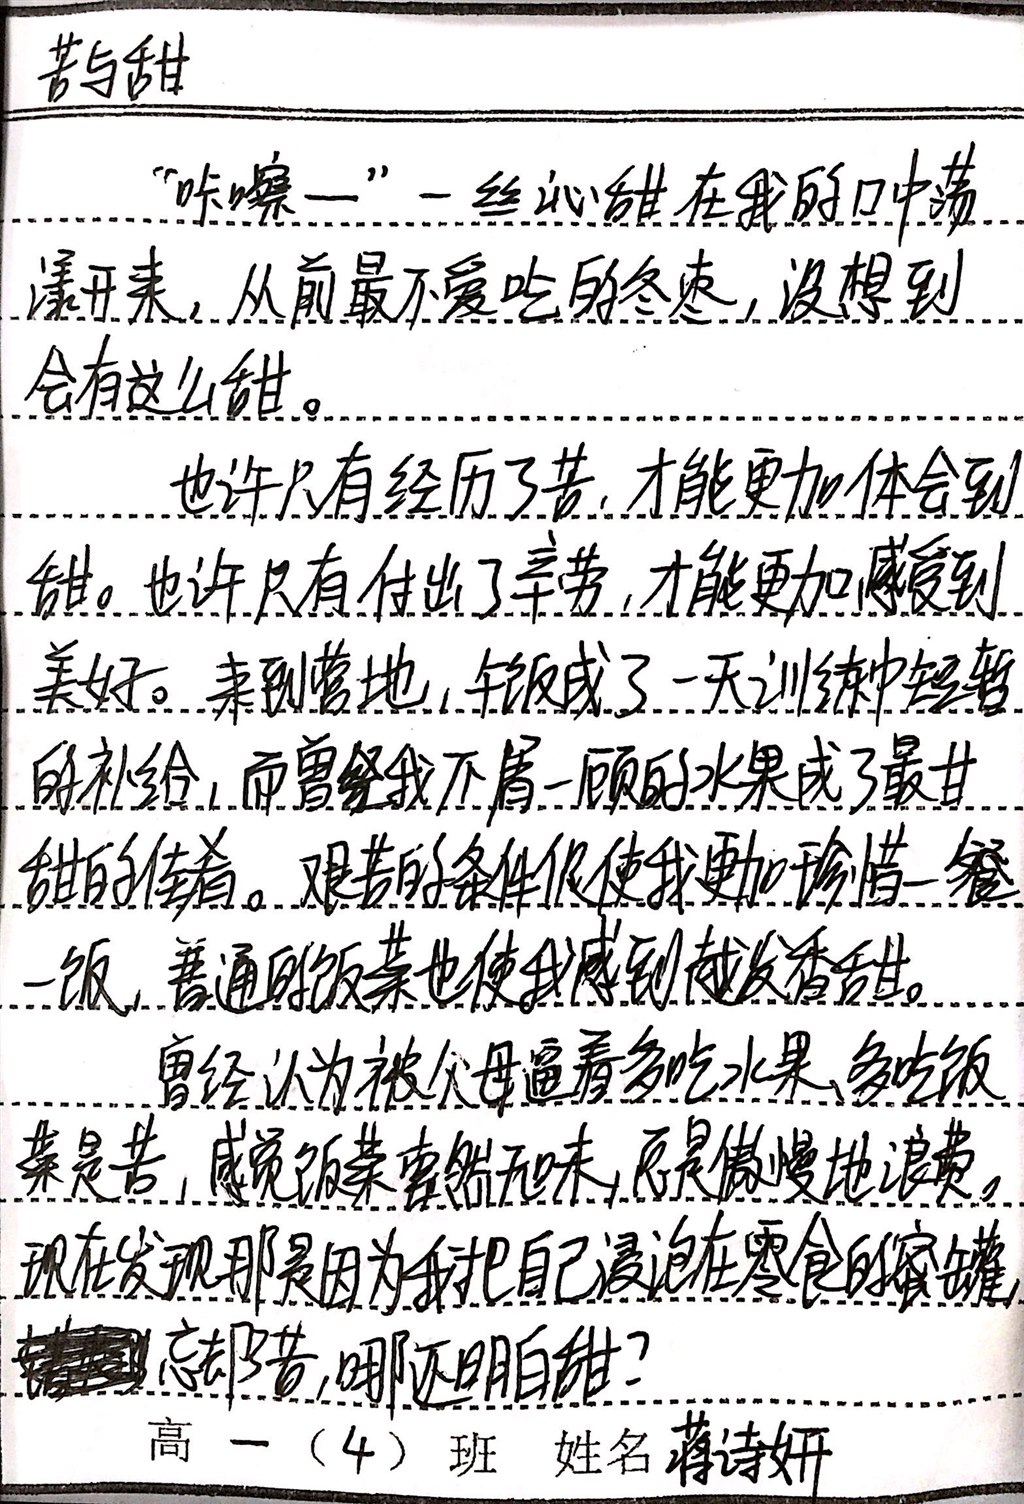 苦与甜
“咔嚓—”一丝沁甜在我的口中荡
漾开来，从前最不爱吃的冬枣，没想到
会有这么甜。
也许只有经历了苦，才能更加体会到
甜。也许只有付出了辛劳，才能更加感受到
美好。来到营地，午饭成了一天训练中短暂
的补给，而曾经我不屑一顾的水果成了最甘
甜的佳肴。艰苦的条件促使我更加珍惜一餐
一饭，普通的饭菜也使我感到越发香甜。
曾经认为被父母逼着多吃水果、多吃饭
菜是苦，感觉饭菜索然无味，总是傲慢地浪费。
现在发现那是因为我把自己浸泡在零食的蜜罐，
忘却了苦，哪还明白甜？
高一（4）班 姓名 蒋诗妍